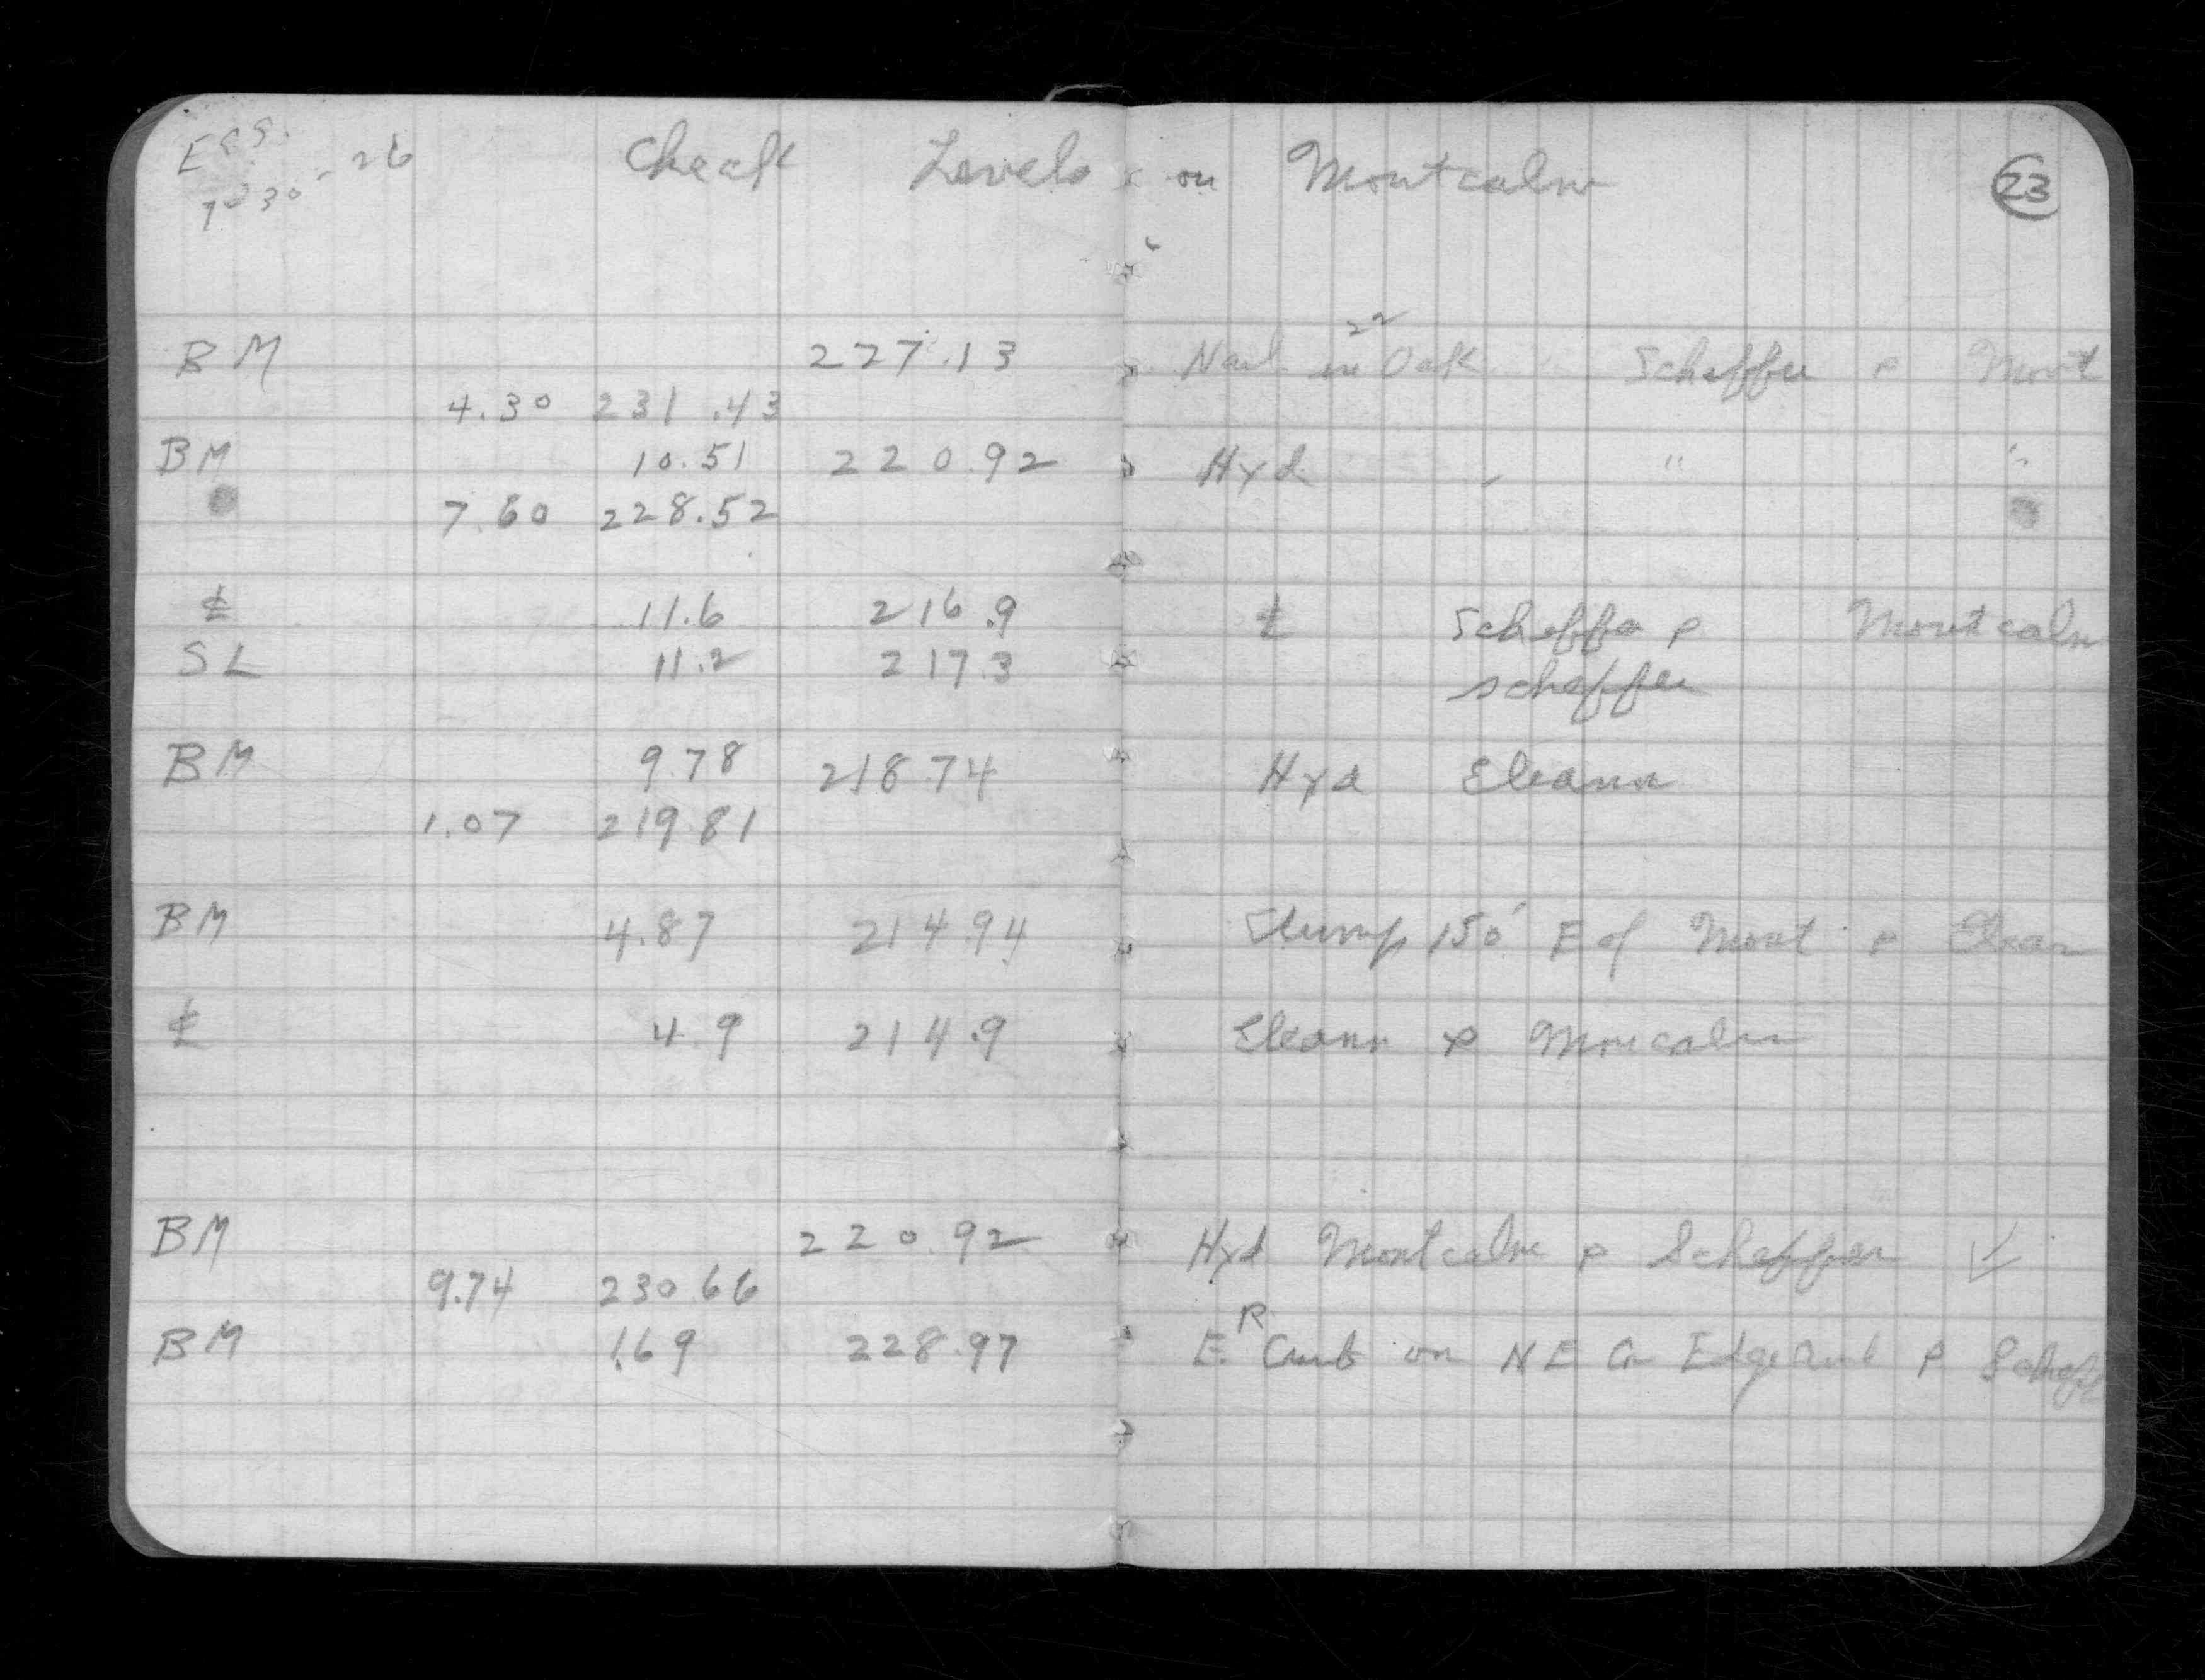 E G S. Check Levels on Montcalm 23
7-30-26
22
BM 227.13 Nail in Oak Scheffer & Mont
4.30 231.43
BM 10.51 220.92 Hyd " " "
7.60 228.52
℄ 11.6 216.9 ℄ Scheffer & Montcalm
SL 11.2 217.3 Scheffer
BM 9.78 218.74 Hyd Eleanr
1.07 219.81
BM 4.87 214.94 Stump 150' E of Mont & Elean
℄ 4.9 214.9 Eleanr & Moncalm
BM 220.92 Hyd Montcalm & Scheffer ✓
9.74 230.66
R
BM 1.69 228.97 E. Curb on NE Cor Edgecumb & Scheff